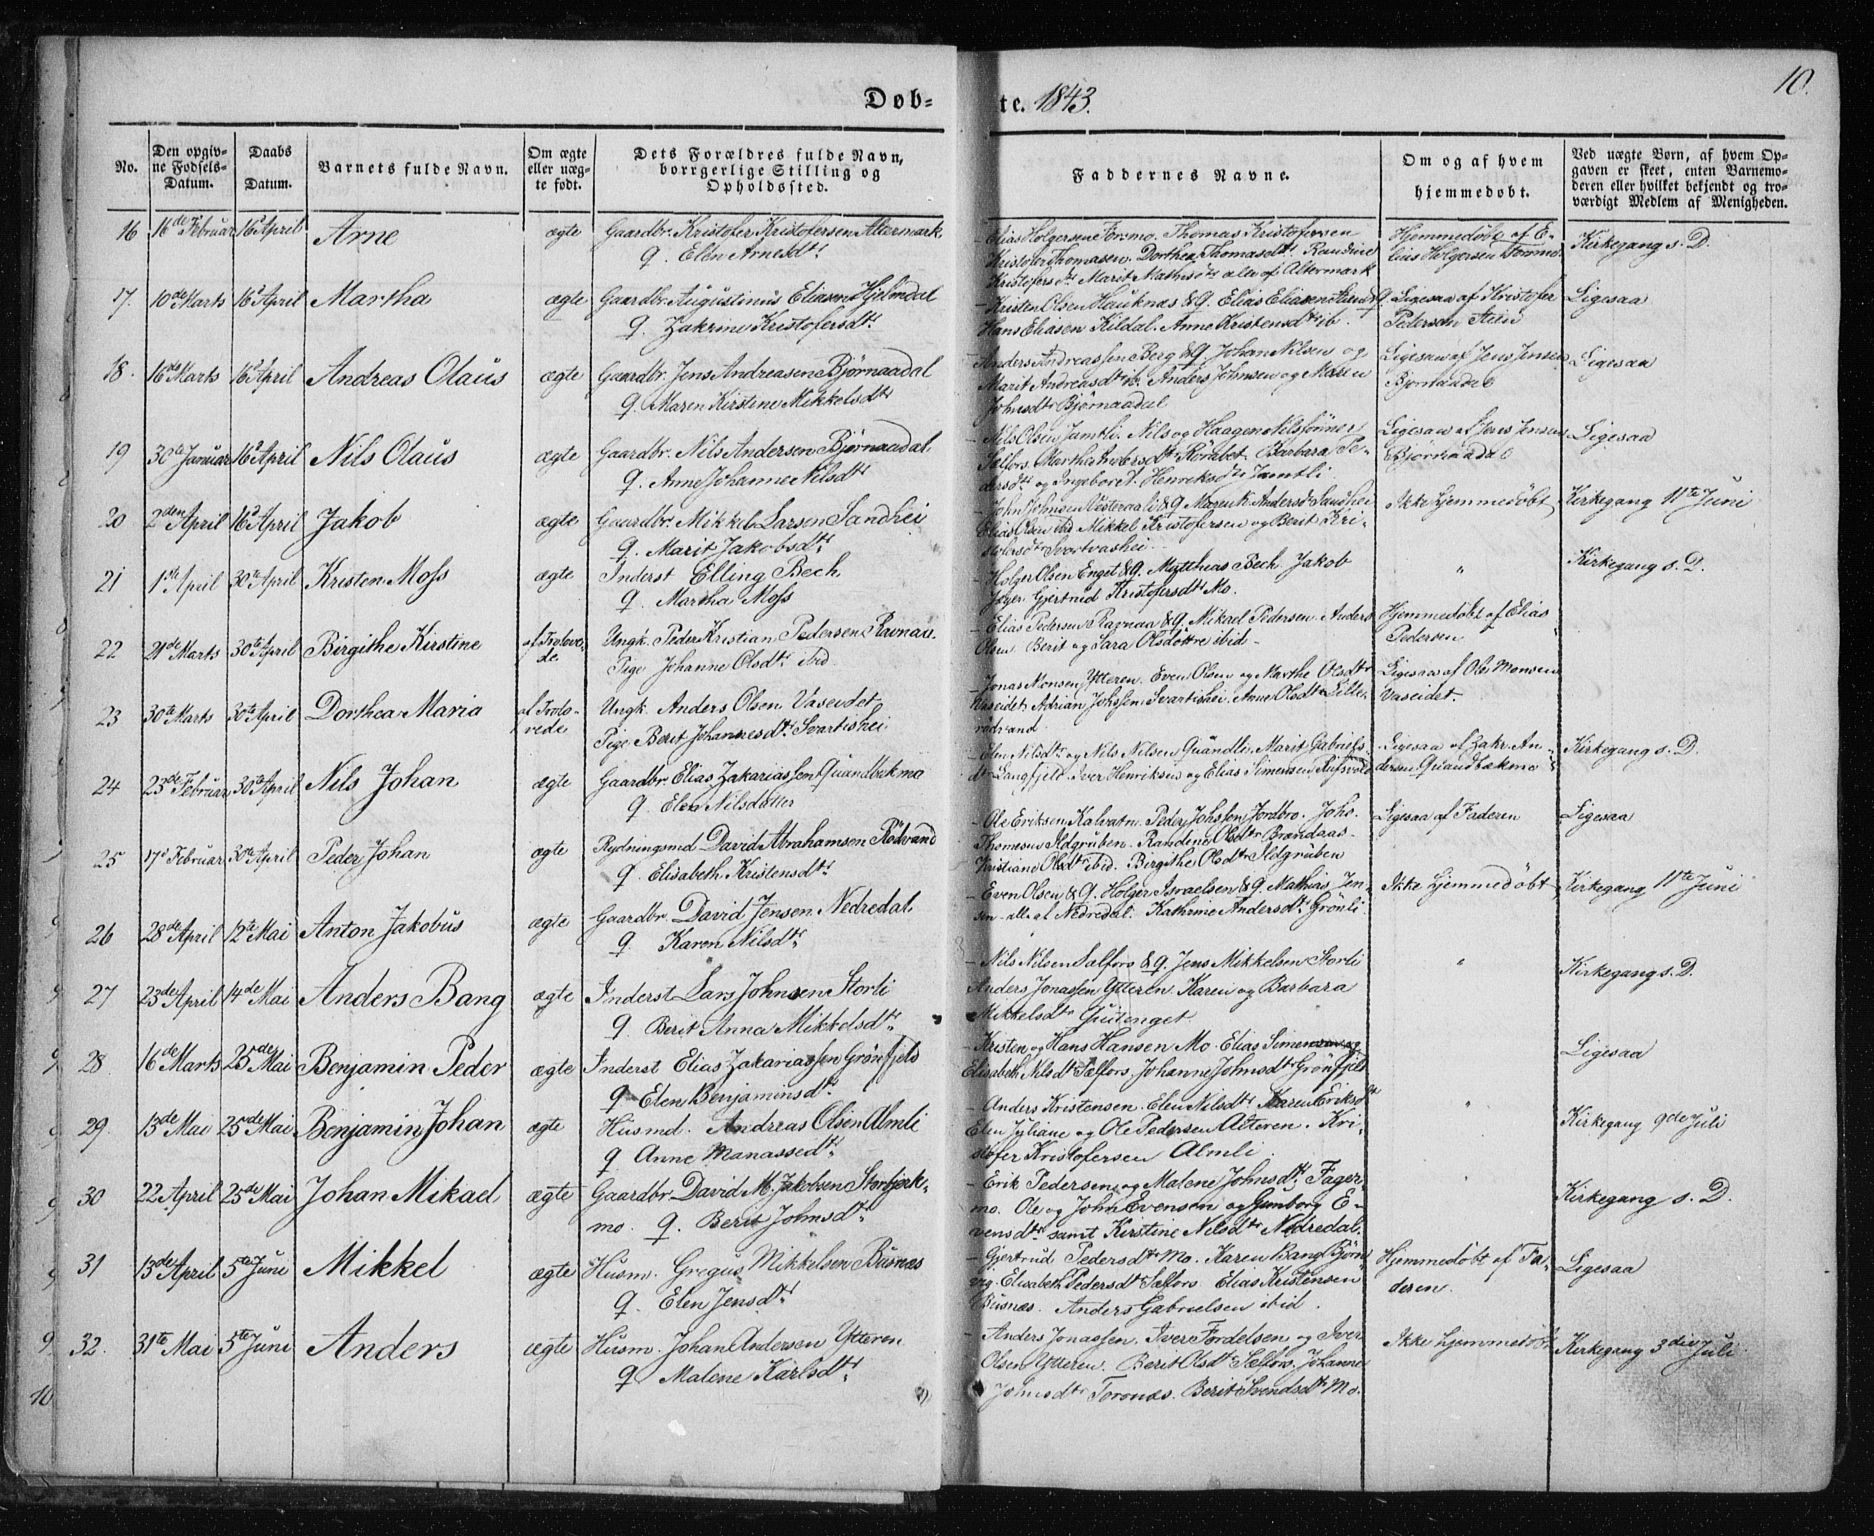 Døb-
te. 1843.
10.
No.
Den opgiv-
ne Fødsels-
Datum.
Daabs
Datum.
Barnets fulde Navn.
Om ægte
eller uæg-
te født.
Dets Forældres fulde Navn,
borrgerlige Stilling og
Opholdssted.
Faddernes Navne.
Om og af hvem
hjemmedøbt.
Ved uægte Børn, af hvem Op-
gaven er skeet, enten Barnemo-
deren eller hvilket bekjendt og tro-
værdigt Medlem af Menigheden.
16 16de Februar 16d April Arne ægte Gaardbr. Kristofer Kristofersen Altermark
q. Elen Arnesdtr
- Elias Holgersen Formo. Thomas Kristofersen
Kristofer Thomasen. Dorthea Thomasdtr. Randine
Kristofersdtr Marit Mathisdtr alle af Altermark
Hjemmedøbt af E-
lias Holgersen Formo
Kirkegang s. D.
17. 10de Marts 16d April Martha ægte Gaardbr. Augustinus Eliasen Hjelmdal
q. Zakrine Kristofersdtr
- Kristen Olsen Hauknas & q. Elias Eliasen
Hans Eliasen Kildal. Anne Kristensdtr ib.
Ligesaa af Kristofer
Pedersen Steen
Ligesaa
18. 16de Marts 16d April Andreas Olaus ægte Gaardbr. Jens Andreasen Bjørnaadal
q. Maren Kirstine Mikkelsdtr
- Anders Andreassen Berg & q. Johan Nilsen og
Marit Andreasdtr ib. Anders Johnsen og Maren
Johnsdtr Bjørnaadal
Ligesaa af Jens Jensen
Bjørnaadal
Ligesaa
19 30te Januar 16d April Nils Olaus ægte Gaardbr. Nils Andersen Bjørnaadal
q. Anne Johanne Nilsdtr
- Nils Olsen Jamtli. Nils og Haagen Nilsønner
Selfors. Marthe Andersdtr Rørabet. Barbara Pe-
dersdtr og Ingeborg A. Henriksdtr Jamtli
Ligesaa af Jens Jensen
Bjørnaadal
Ligesaa
20 2den April 16d April Jakob ægte Gaardbr. Mikkel Larsen Sandhei
q. Marit Jakobsdtr
- John Johnsen Nesteraali & q. Maren K. Andersdtr Sandhei
Elias Olsen ibid Mikkel Kristofersen og Berit Kri-
stofersdtr Svortvashei
Ikke hjemmedøbt
Kirkegang 11te Juni
21 1ste April 30te April Kristen Moss ægte Inderst Elling Bech
q. Martha Moss
- Holger Olsen Enget & q. Matthias Bech Jakob
Jeger. Gjertrud Kristofersdtr Mo.
"
Kirkegang s. D.
22 21de Marts 30te April Birgithe Kirstine af Trolove-
de Ungk. Peder Kristian Pedersen Ravnaa.
Pige Johanne Olsdtr ibid
- Elias Pedersen Ravnaa & q. Mikael Pedersen. Anders
Olsen Berit og Sara Olsdøttre ibid
Hjemmedøbt af Elias
Pedersen
23 30te Marts 30te April Dorthea Maria af Trolo-
vede Ungk. Anders Olsen Vaseidet
Pige Berit Johannesdtr Svartishei
- Jonas Monsen Ytteren. Even Olsen og Marthe Olsdtr
Vaseidet Adrian Johssen Svartishei. Anne Olsdtr Lille-
rødvand
Ligesaa af Ole Monsen
Vaseidet.
24 23de Februar 30te April Nils Johan ægte Gaardbr. Elias Zakariassen Quandbekmo
q. Elen Nilsdatter
- Elen Nilsdtr og Nils Nilsen Quandli. Marit Gabriels-
dtr Langfjeld. Iver Henriksen og Elias Simensen Rufsvold
Ligesaa af Zakr. An-
dersen Quandbækmo
Kirkegang s. D.
25 17d Februar 30te April Peder Johan ægte Rydningsmd David Abrahamsen Rødvand
q. Elisabeth Kristensdtr
- Ole Eriksen Kalvatn. Peder Johssen Jordbro. Joh.
Thomesen Ildgruben. Randine Olsdtr Brandaas
Kristiane Olsdtr ibid. Birgithe Olsdtr Ildgruben
Ligesaa af Faderen
Ligesaa
26 28de April 12te Mai Anton Jakobus ægte Gaardbr. David Jensen Nedredal
q Karen Nilsdtr
- Even Olsen & q. Holger Israelsen & q. Mathias Jen-
sen - alle af Nedredal. Kathrine Andersdtr Grønli
Ikke hjemmedøbt
Kirkegang 11te Juni
27 23de April 14de Mai Anders Bang ægte Inderst Lars Johnsen Storli
q Berit Anna Mikkelsdtr
- Nils Nilsen Selfors & q. Jens Mikkelsen Storli
Anders Jonassen Ytteren Karen og Barbara
Mikkelsdtr Gutenget
"
Kirkegang s. D.
28 16de Marts 25de Mai Benjamin Peder ægte Inderst Elias Zakariassen Grønfjeld
q Elen Benjaminsdtr
- Kristen og Hans Hansen Mo Elias Simensen og
Elisabeth Nilsdtr Selfors. Johanne Johnsdtr Grønfjeld
Ligesaa
29. 13de Mai 25de Mai Benjamin Johan ægte Husmd. Andreas Olsen Almli
q Anne Manassedtr
- Anders Kristensen. Elen Nilsdtr Karen Eriksdtr
Elen Juliane og Ole Pedersen Alteren. Kri-
stofer Kristofersen Almli
"
Kirkegang 9de Juli
30 22 April 25de Mai Johan Mikael ægte Gaardbr. David M. Jakobsen Storbjerk-
mo. q. Berit Johnsdtr
- Erik Pedersen og Malene Johnsdtr Fager-
mo. Ole og John Evensen og Gunborg E-
vensdtr samt Kirstine Nilsdtr Nedredal
Kirkegang s. D.
31 13de April 5te Juni Mikkel ægte Husm. Gregus Mikkelsen Busnæs
q. Elen Jensdtr
- Gjertrud Pedersdtr Mo. Karen Bang Bjørn
Elisabeth Pedersdtr Selfors Elias Kristensen
Busnæs. Anders Gabrielsen ibid.
Hjemmedøbt af Fa-
deren.
Ligesaa
32. 31te Mai 5te Juni Anders ægte Husm. Johan Andersen Ytteren
q Malene Karlsdtr
- Anders Jonassen. Iver Fordelsen og Iver
Olsen Ytteren. Berit Olsdtr Selfors. Johanne
Johnsdtr Toronæs. Berit Svendsdtr Mo.
Ikke hjemmedøbt
Kirkegang 3die Juli